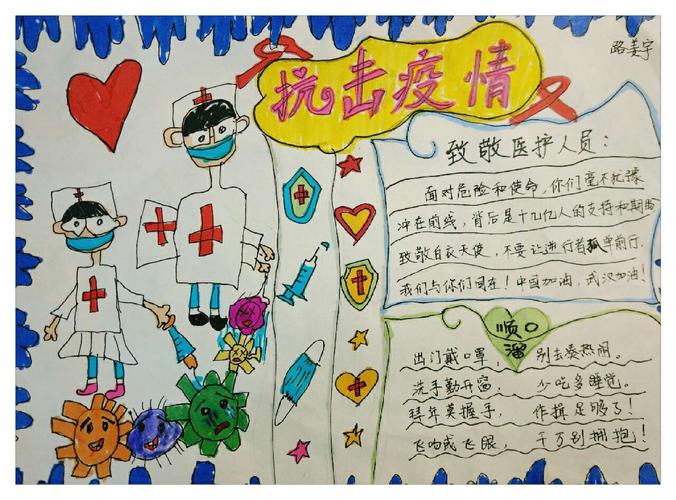 抗击疫情
路美宇
致敬医护人员：
面对危险和使命，你们毫不犹豫
冲在前线，背后是十几亿人的支持和期盼
致敬白衣天使，不要让逆行者孤单前行，
我们与你们同在！中国加油，武汉加油！
顺口
溜
出门戴口罩， 别去凑热闹。
洗手勤开窗， 少吃多睡觉。
拜年莫握手， 作揖足够了！
飞吻或飞眼， 千万别拥抱！